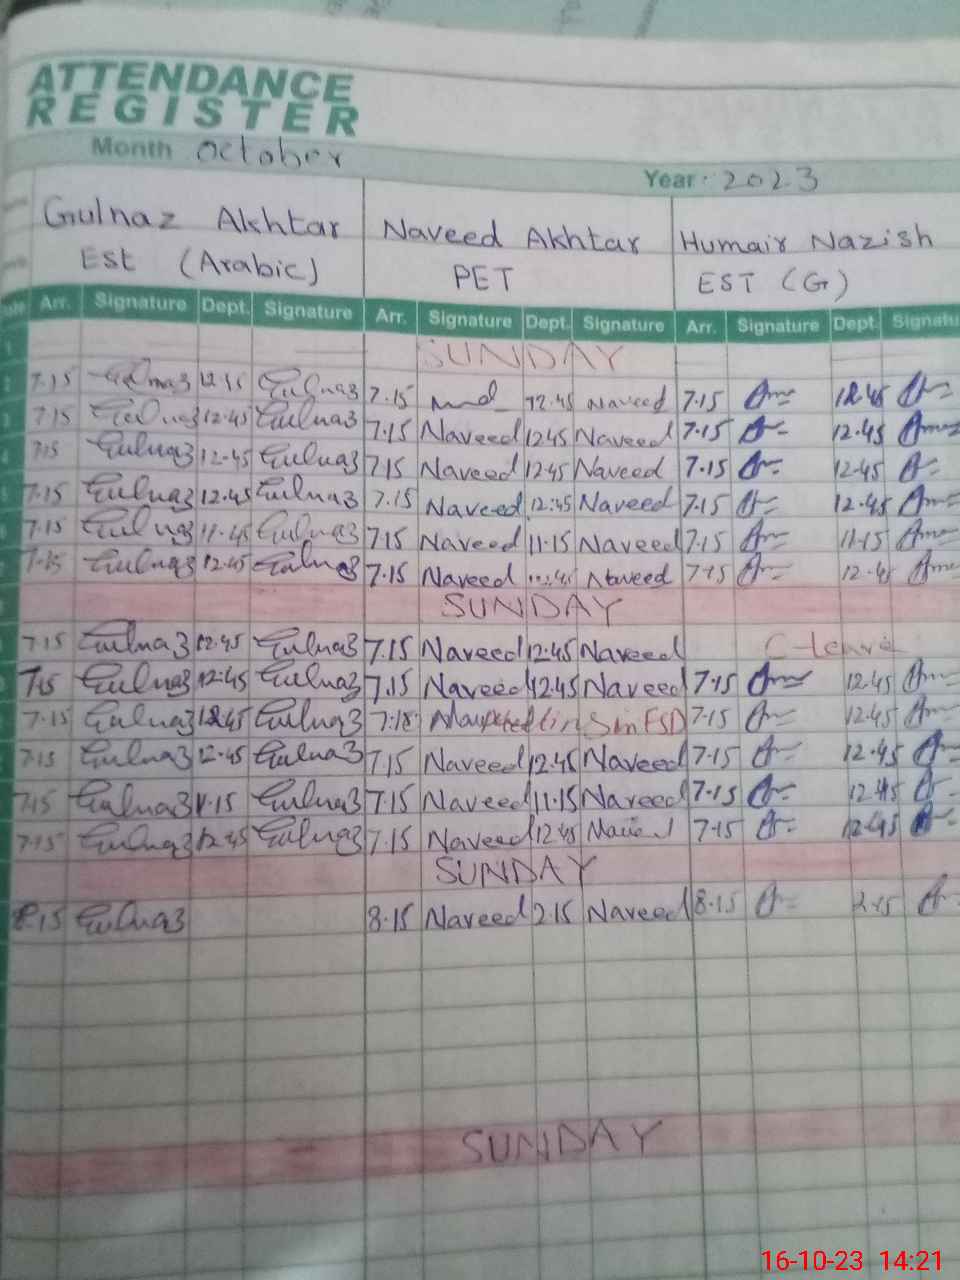 ATTENDANCE
REGISTER
Month October
Year 2023
Gulnaz Akhtar Naveed Akhtar Humair Nazish
Est (Arabic) PET EST (G)
Arr. Signature Dept. Signature Arr. Signature Dept. Signature Arr. Signature Dept. Signatu
1 SUNDAY
2 7.15 12.45 Gulnaz 7.15 12.45 Naveed 7.15 12.45
3 7.15 Gulnaz 12.45 Gulnaz 7.15 Naveed 12.45 Naveed 7.15 12.45
4 7.15 Gulnaz 12.45 Gulnaz 7.15 Naveed 12.45 Naveed 7.15 12.45
5 7.15 Gulnaz 12.45 Gulnaz 7.15 Naveed 12.45 Naveed 7.15 12.45
7.15 Gulnaz 11.45 Gulnaz 7.15 Naveed 11.15 Naveed 7.15 11.15
7.15 Gulnaz 12.45 Gulnaz 7.15 Naveed 12.45 Naveed 7.15 12.45
SUNDAY
7.15 Gulnaz 12.45 Gulnaz 7.15 Naveed 12.45 Naveed C-leave
7.15 Gulnaz 12.45 Gulnaz 7.15 Naveed 12.45 Naveed 7.15 12.45
7.15 Gulnaz 12.45 Gulnaz 7.15 in FSD 7.15 12.45
7.15 Gulnaz 12.45 Gulnaz 7.15 Naveed 12.45 Naveed 7.15 12.45
7.15 Gulnaz 11.15 Gulnaz 7.15 Naveed 11.15 Naveed 7.15 12.45
7.15 Gulnaz 12.45 Gulnaz 7.15 Naveed 12.45 7.15 12.45
SUNDAY
8.15 Gulnaz 8.15 Naveed 2.15 Naveed 8.15 2.15
SUNDAY
16-10-23 14:21